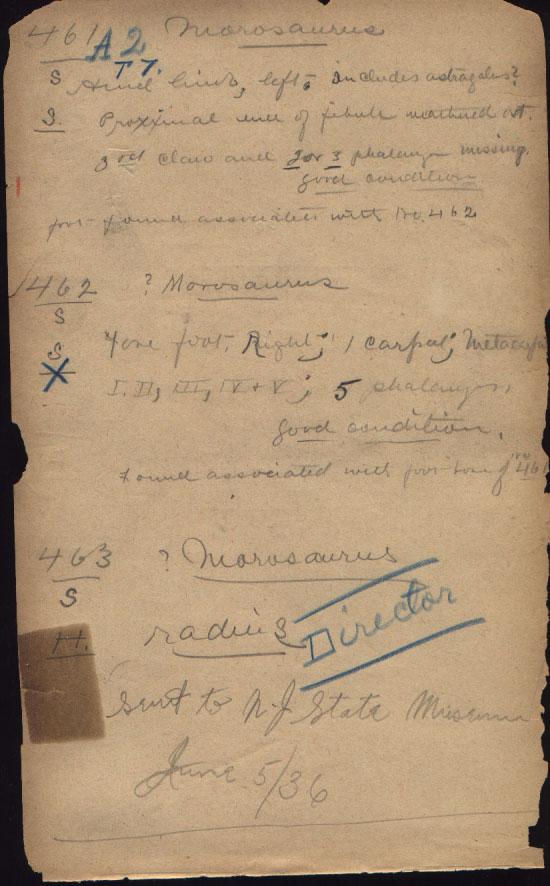 461 A2 Morosaurus
S T7.
Hind limb, left; includes astragalus?
S. Proxximal end of fibula weathered off.
3rd claw and 2 or 3 phalanges missing.
good condition
foot found associated with No. 462
462 ? Morosaurus
S
S Fore foot, Right; 1 carpal; Metacarpa
I. II, III, IV + V; 5 phalanges,
good condition.
Found associated with foot bone of No 461
463 ? Morosaurus
S
H. radius Director
Sent to N.J State Museum
June 5/36